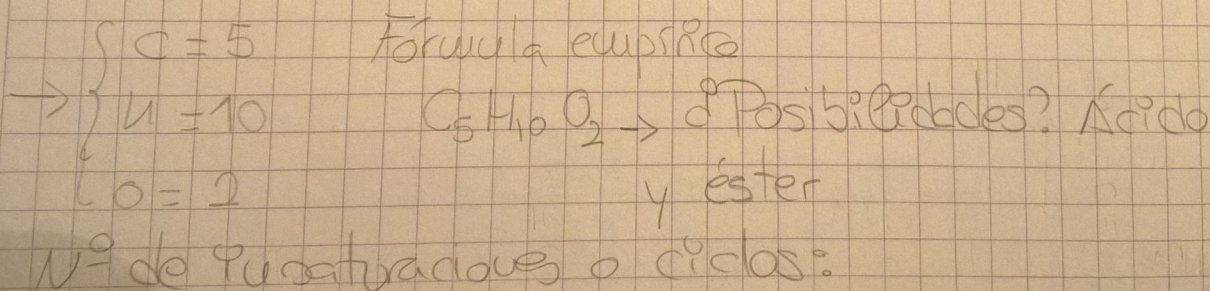 C = 5 Fórmula empírica
→ H = 10 C5H10O2 → ¿Posibilidades? Ácido
O = 2 y éster
Nº de insaturaciones o ciclos: